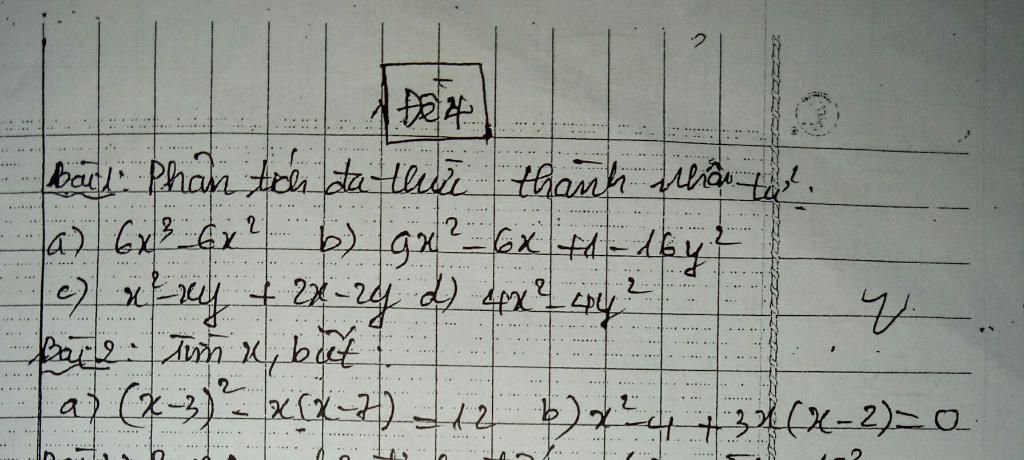 Đề 4
Bài 1: Phân tích đa thức thành nhân tử:
a) 6x³ - 6x² b) 9x² - 6x + 1 - 16y²
c) x² - xy + 2x - 2y d) 4x² - 4y²
Bài 2: Tìm x, biết:
a) (x-3)² - x(x-7) = 12 b) x² - 4 + 3x(x-2) = 0